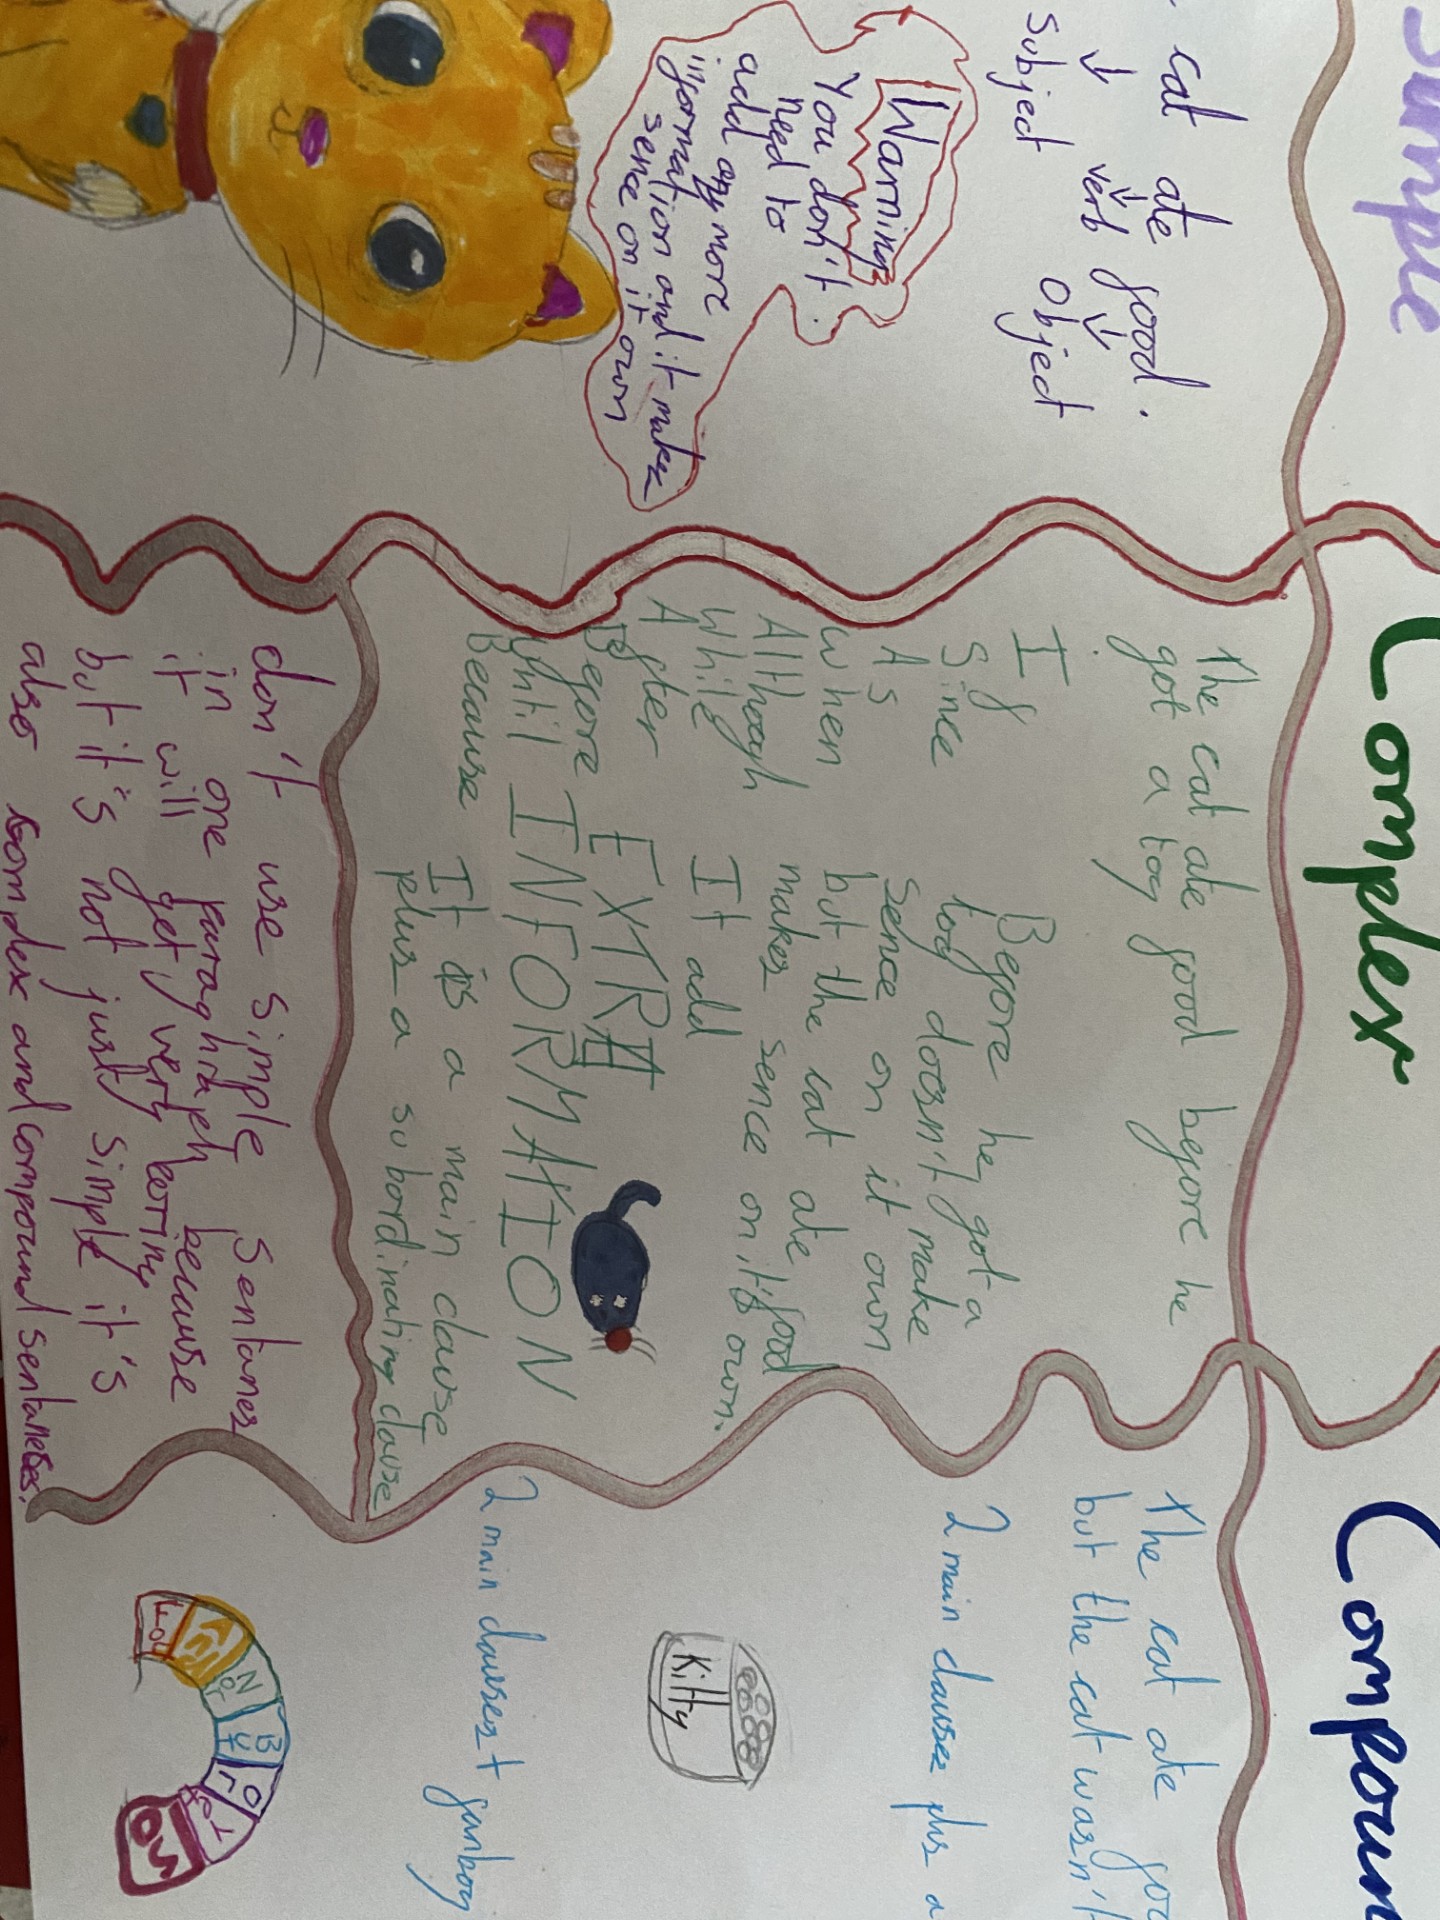 Simple
cat ate food.
subject verb object
Warning
You don't
need to
add any more
information and it makes
sence on it own
Complex
The cat ate food before he
got a toy
If
Since
As
When
Allthough
While
After
Before
Until
Because
Before he got a
toy doesn't make
sence on it own
but the cat ate food
makes sence on it's own.
It add
EXTRA
INFORMATION
It is a main clause
plus a subordinating clause
don't use simple sentanes
in one paraghraph because
it will get very borring
but it's not just simple it's
also complex and compound sentaneses.
Compoun
The cat ate foo
but the cat wasn't
2 main clauses plus a
Kitty
2 main clauses + fanboy
FOr
And
NOr
BUT
Or
YeT
SO